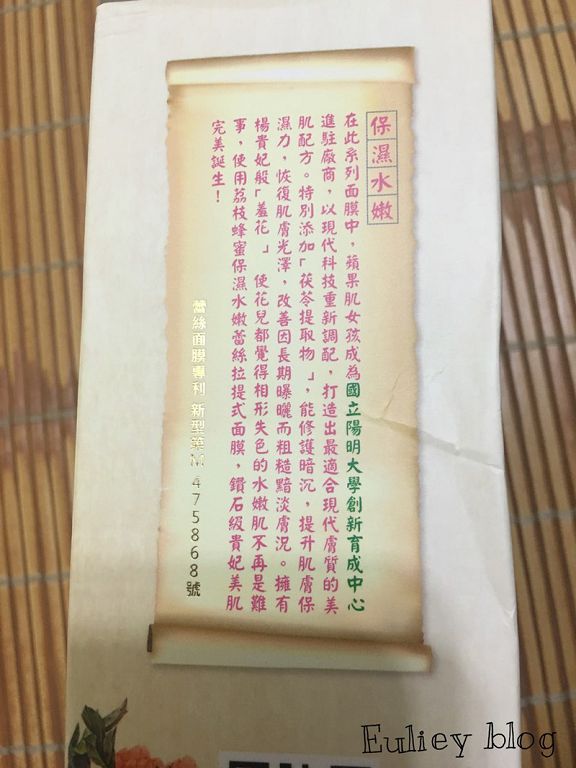 保濕水嫩
在此系列面膜中，蘋果肌女孩成為國立陽明大學創新育成中心
進駐廠商，以現代科技重新調配，打造出最適合現代膚質的美
肌配方。特別添加「茯苓提取物」，能修護暗沉，提升肌膚保
濕力，恢復肌膚光澤，改善因長期曝曬而粗糙黯淡膚況。擁有
楊貴妃般「羞花」 使花兒都覺得相形失色的水嫩肌不再是難
事，使用荔枝蜂蜜保濕水嫩蕾絲拉提式面膜，鑽石級貴妃美肌
完美誕生！
蕾絲面膜專利 新型第M475868號
Euliey blog